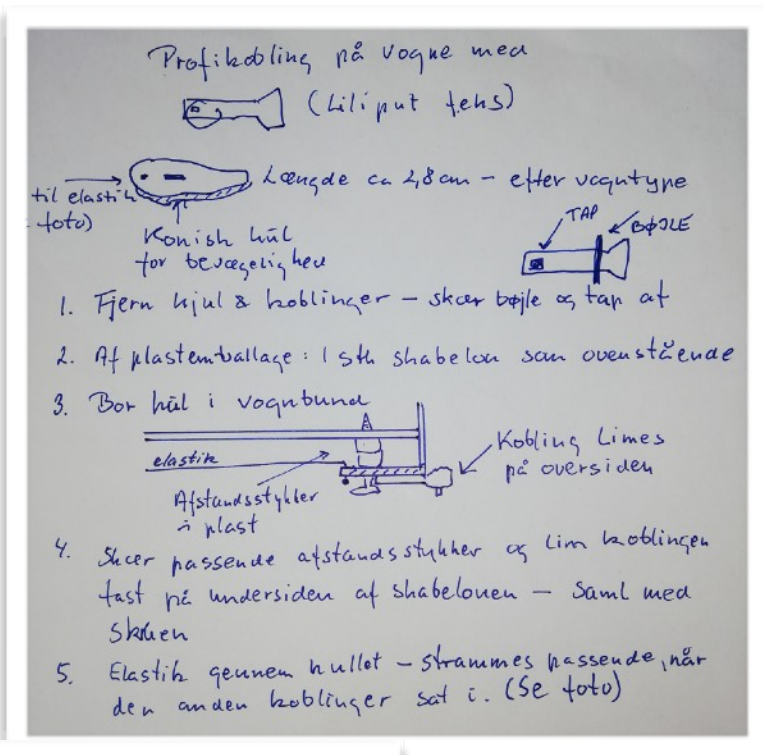 Profikobling på vogne med
(Liliput feks)
til elastik
foto)
Længde ca 2,8 cm - efter vogntype
Konisk hūl
for bevægelighed
TAP
BØJLE
1. Fjern hjul & koblinger - skær bøjle og tap af
2. Af plastemballage: 1 stk skabelon som ovenstående
3. Bor hūl i vognbund
elastik
Afstandsstykker
i plast
Kobling Limes
på oversiden
4. Skær passende afstandsstykker og lim koblingen
fast på undersiden af skabelonen - Saml med
Skruen
5. Elastik gennem hullet - strammes passende, når
den anden koblinger sat i. (Se foto)